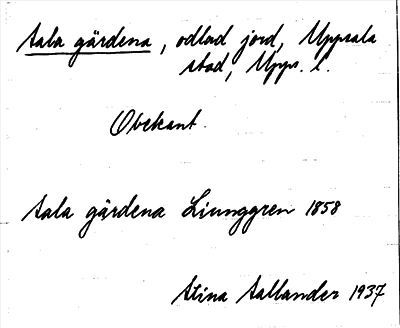 Sala gärdena, odlad jord, Uppsala
stad, Upps. l.
Obekant.
Sala gärdena Liunggren 1858
Stina Sallander 1937